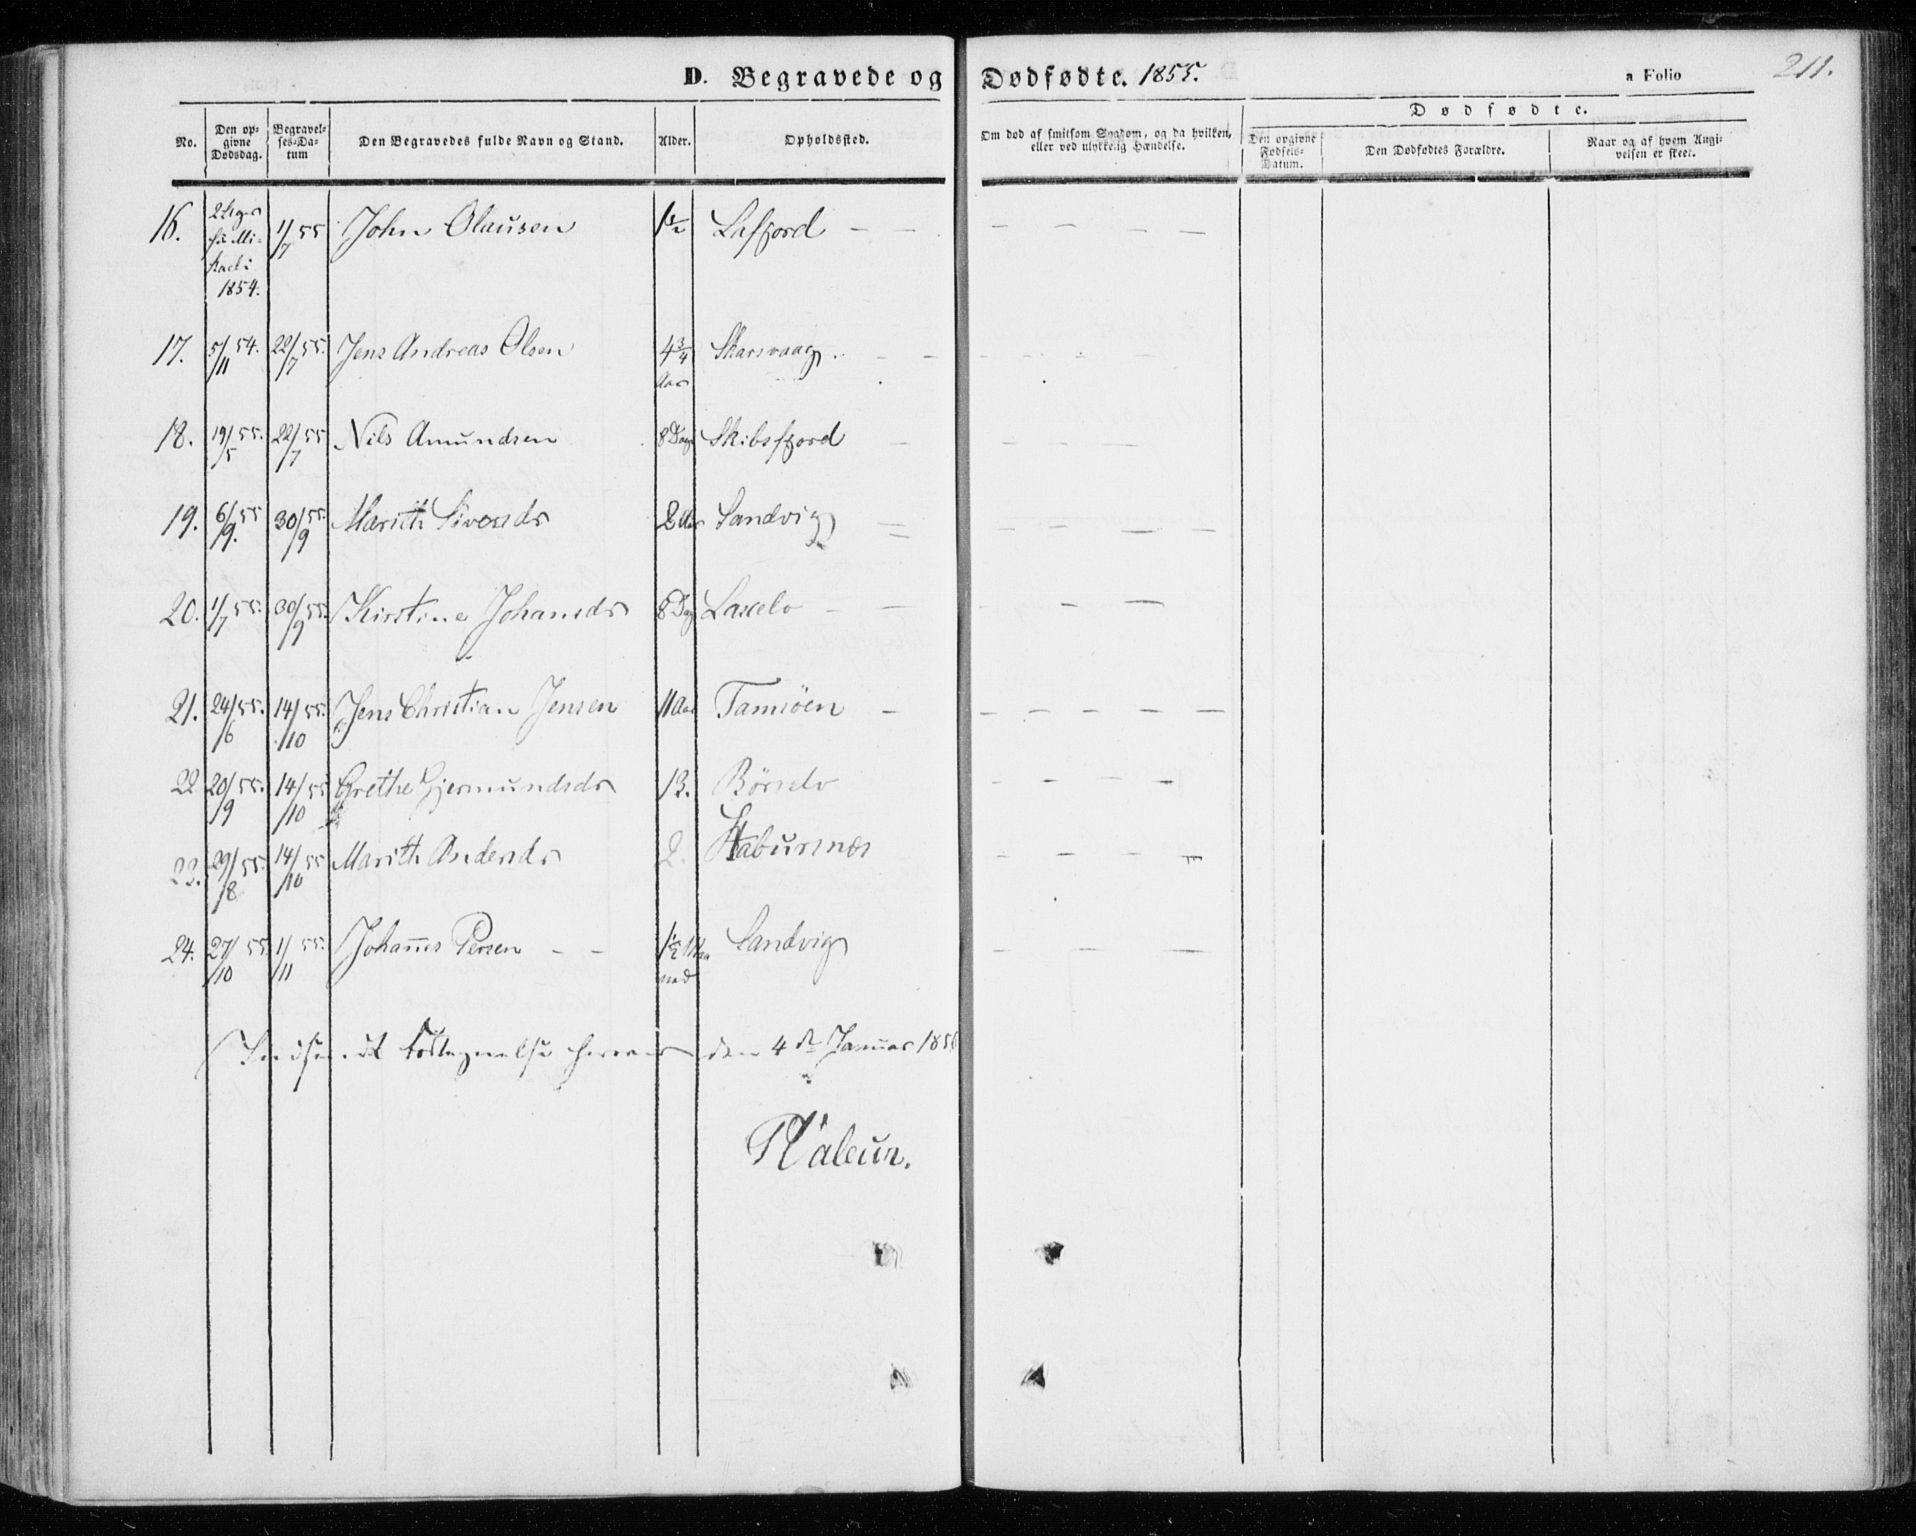 D. Begravede og Dødfødte. 1855. a Folio 211.
No.
Den op-
givne
Dødsdag.
Begravel-
ses-Da-
tum
Den Begravedes fulde Navn og Stand.
Alder.
Opholdssted.
Om død af smitsom Sygdom, og da hvilken,
eller ved ulykkelig Hændelse.
Dødfødte.
Den opgivne
Fødsels-
Datum.
Den Dødfødtes Forældre.
Naar og af hvem Angi-
velsen er skeet.
16. 1/7 55 John Olausen 1 1/2 Lafjord – –
1854.
17. 5/11 54. 22/7 55. Jens Andreas Olsen 4 3/4 Skarsvaag. – –
Aar
18. 19/5 55. 22/7 55 Nils Amundsen 8 Dage Skibsfjord –
19. 6/9. 55 30/9 55. Marith Siversdr 2 Aar Sandvig =
20. 1/7 55. 30/9 55. Kirstine Johansdr 8 Dag Laxelv – –
21. 24/6 55. 14/10 55. Jens Christian Jensen 11 Aar Tamsöen –
22 20/9 55. 14/10 55 Grethe Gjermundsdr 13. Börselv
23. 29/8 55. 14/10 55 Marith Andersdr 2. Stabursnæs
24. 27/10 55 1/11 55. Johannes Persen – – 1 1/2 Maa
ned Sandvig
Indsendt Fortegnelse herover den 4de Januar 185